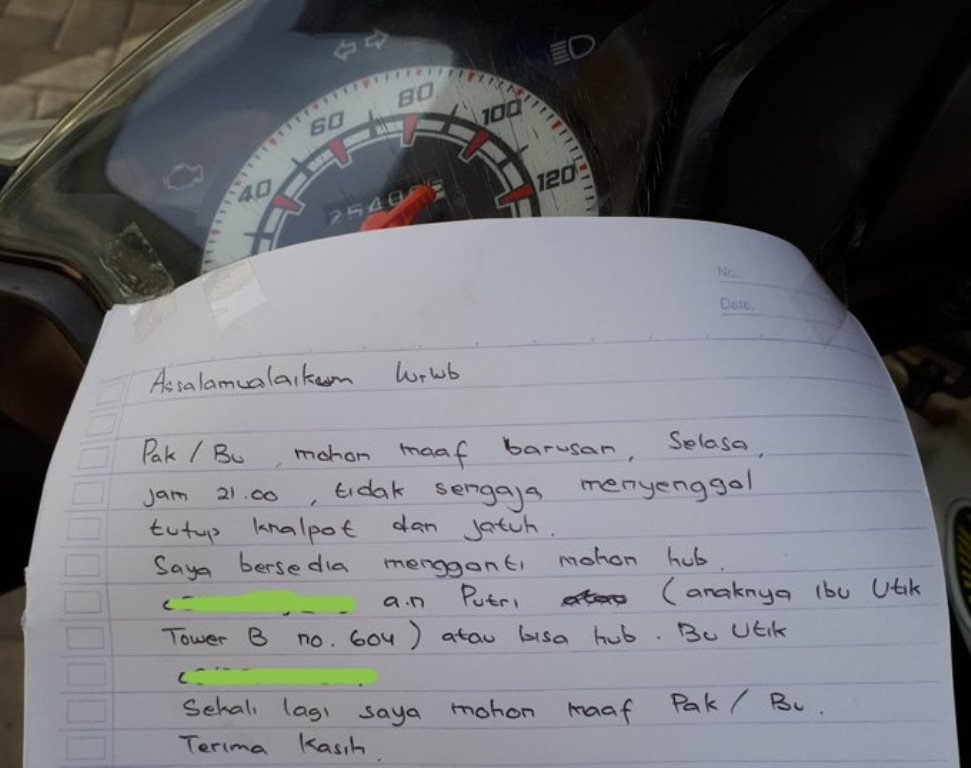 40 60 80 100 120
No.
Date.
Assalamualaikum Wrwb
Pak / Bu, mohon maaf barusan, Selasa,
jam 21.00, tidak sengaja menyenggol
tutup knalpot dan jatuh.
Saya bersedia mengganti mohon hub.
a.n Putri (anaknya Ibu Utik
Tower B no. 604) atau bisa hub. Bu Utik
Sekali lagi saya mohon maaf Pak / Bu.
Terima Kasih.